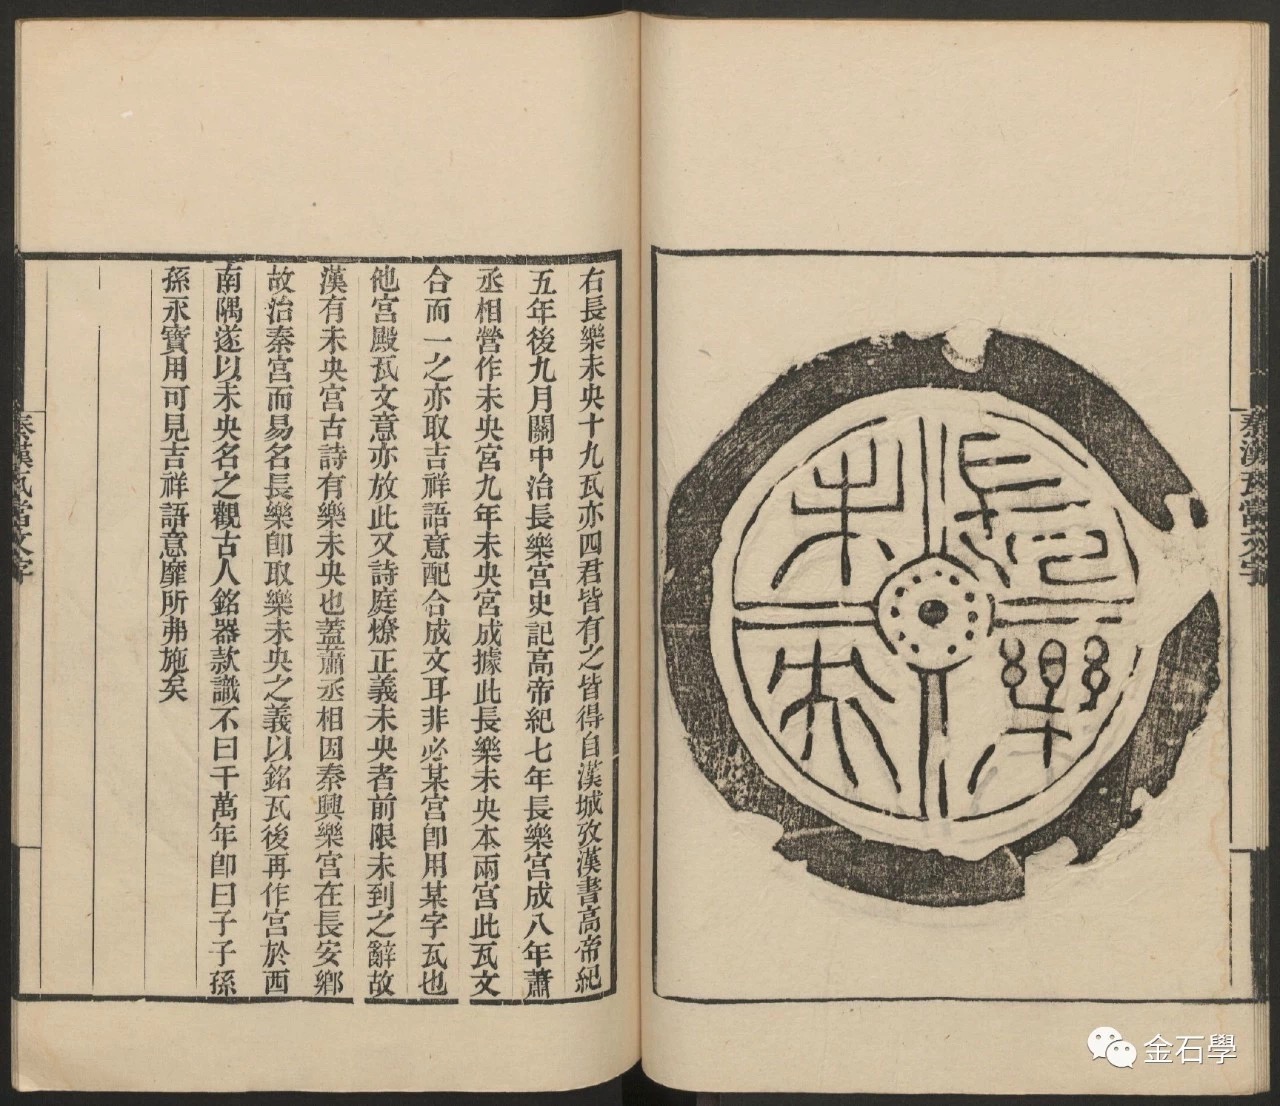 秦漢瓦當文字
長樂
未央
右長樂未央十九瓦亦四君皆有之皆得自漢城攷漢書高帝紀
五年後九月關中治長樂宮史記高帝紀七年長樂宮成八年蕭
丞相營作未央宮九年未央宮成據此長樂未央本兩宮此瓦文
合而一之亦取吉祥語意配合成文耳非必某宮卽用某字瓦也
他宮殿瓦文意亦放此又詩庭燎正義未央者前限未到之辭故
漢有未央宮古詩有樂未央也蓋蕭丞相因秦興樂宮在長安鄉
故治秦宮而易名長樂卽取樂未央之義以銘瓦後再作宮於西
南隅遂以未央名之觀古人銘器款識不曰千萬年卽曰子子孫
孫永寶用可見吉祥語意靡所弗施矣
秦漢瓦當文字
金石學